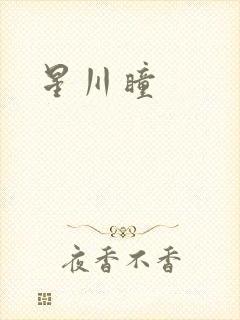 星川瞳
夜香不香